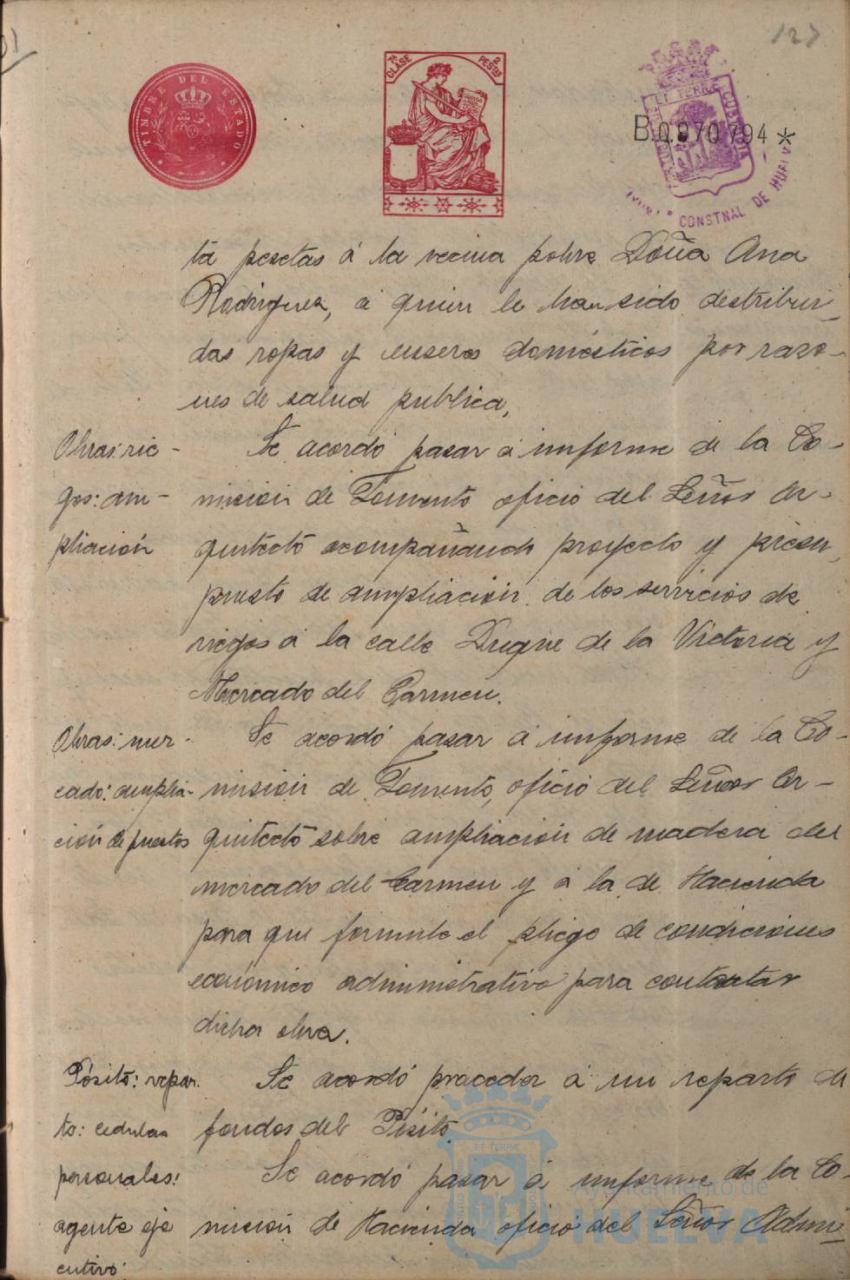 127
TIMBRE DEL ESTADO
7ª CLASE 2 PESTAS
B.0.970.794 *
CONSTNAL DE HUELVA
ta pesetas á la vecina pobre Doña Ana
Rodriguez, á quien le han sido destribui-
das ropas y enseres domésticos por razo-
nes de salud publica,
Obras: rie-
gos: am-
pliación
Se acordó pasar á informe de la Co-
mision de Fomento oficio del Señor Ar-
quitecto acompañando proyecto y presu-
puesto de ampliación de los servicios de
riegos á la calle Duque de la Victoria y
Mercado del Carmen.
Obras: mer-
cado: amplia-
ción de puestos
Se acordó pasar á informe de la Co-
mision de Fomento, oficio del Señor Ar-
quitecto sobre ampliación de madera del
mercado del Carmen y á la de Hacienda
para que formule el pliego de condiciones
económico administrativo para contratar
dicha obra.
Pósito: repar-
to: cedulas
personales:
agente eje
cutivo:
Se acordó proceder á un reparto de
fondos del Pósito.
Se acordó pasar á informe de la Co-
mision de Hacienda oficio del Señor Admi
Ayuntamiento de
HUELVA